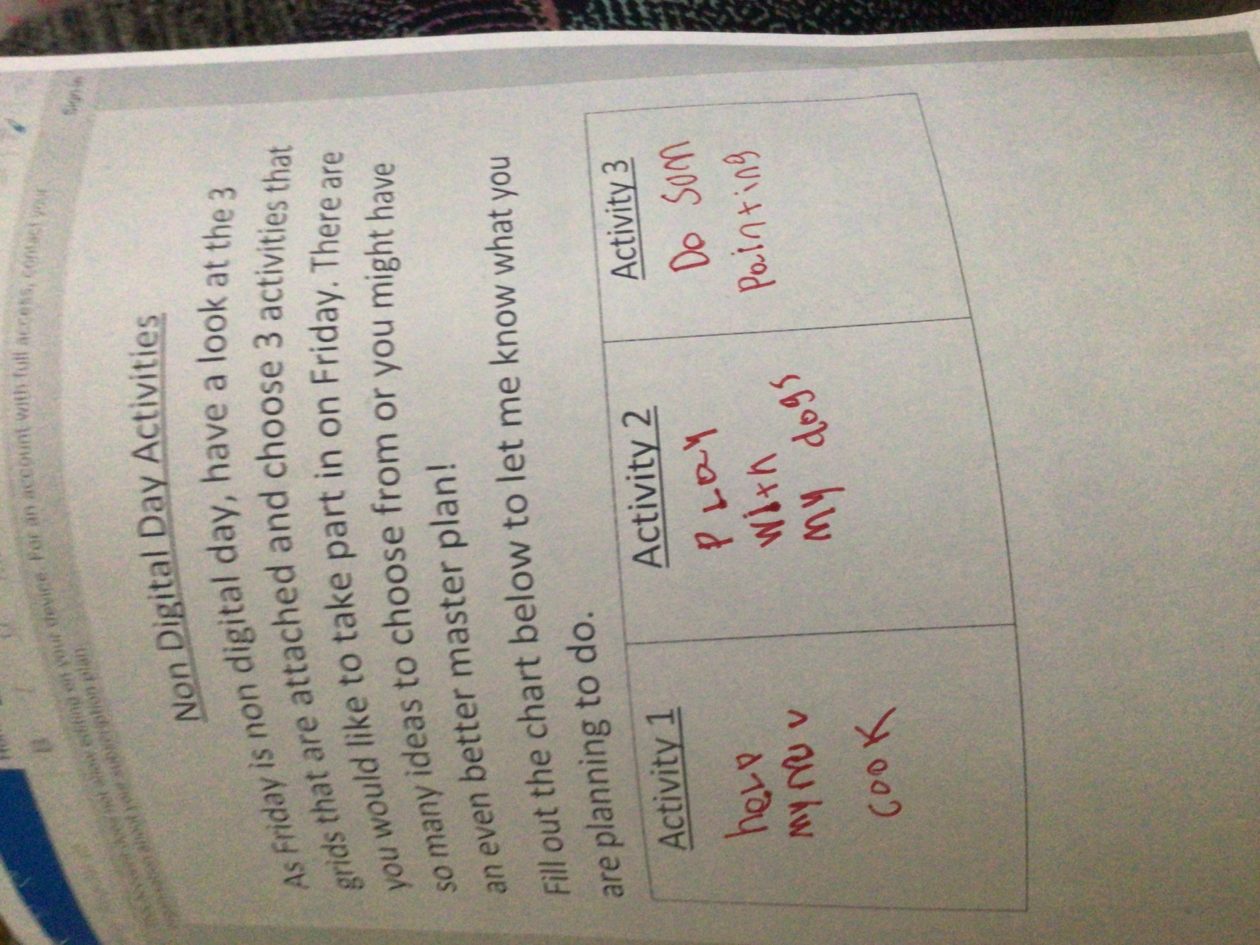 Sign in
Non Digital Day Activities
As Friday is non digital day, have a look at the 3
grids that are attached and choose 3 activities that
you would like to take part in on Friday. There are
so many ideas to choose from or you might have
an even better master plan!
Fill out the chart below to let me know what you
are planning to do.
Activity 1
help
my
cook
Activity 2
Play
with
my dogs
Activity 3
Do Som
Painting